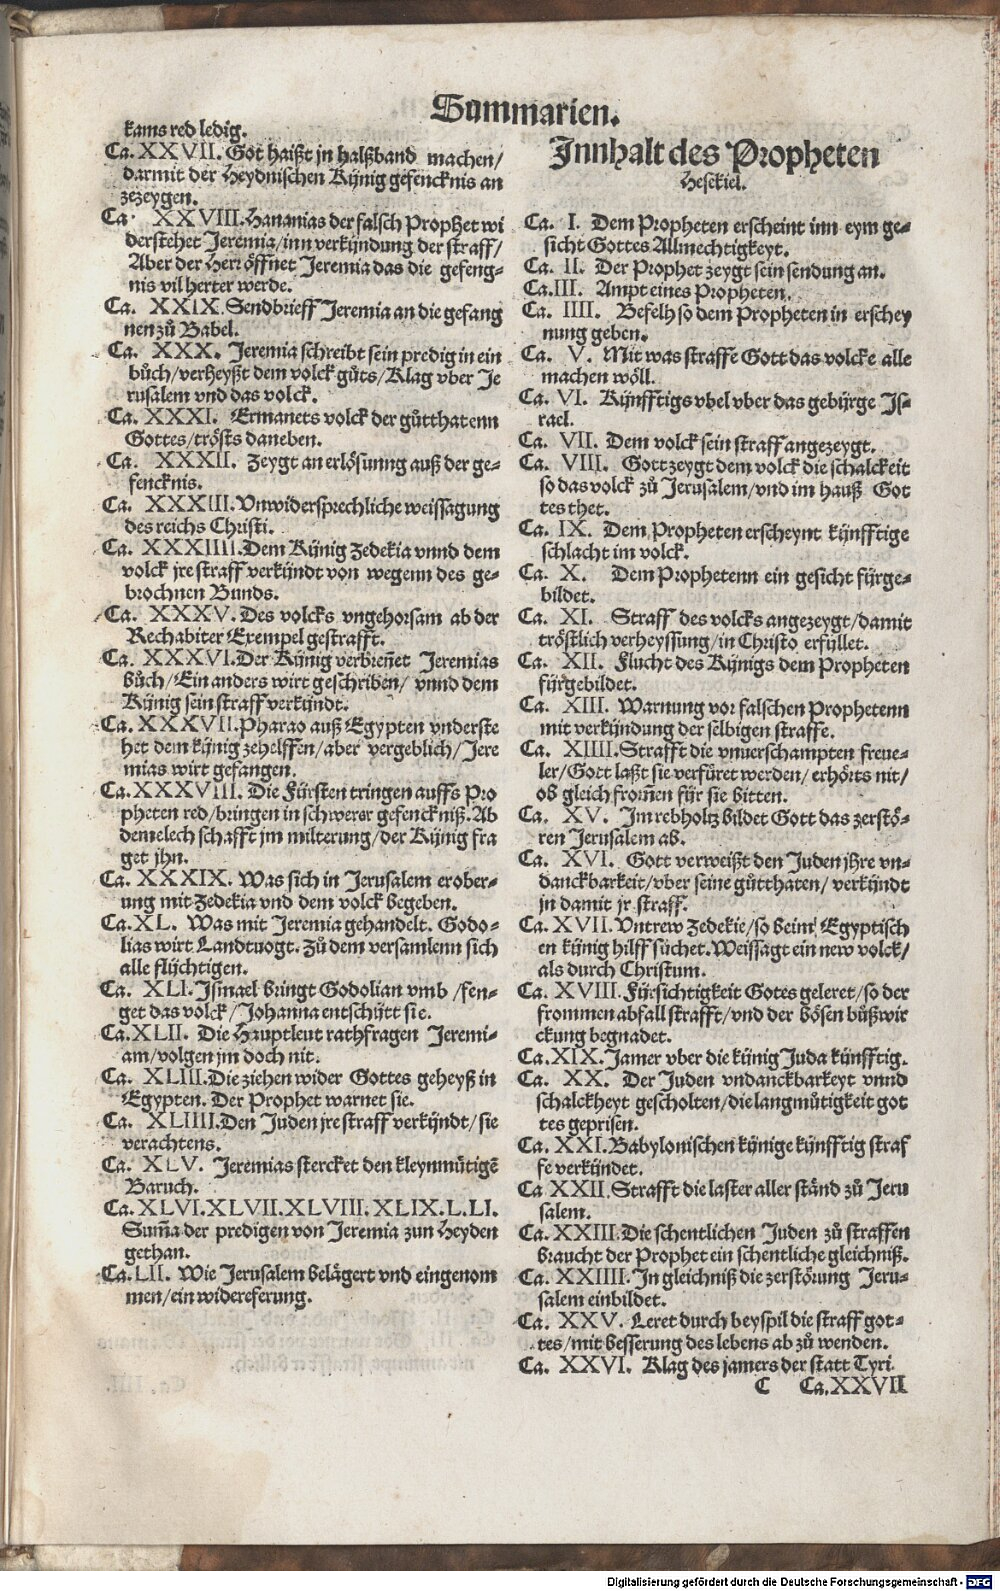 Summarien.
kams red ledig.
Ca. XXVII. Got haißt jn halßband machen/
darmit der Heydnischen Künig gefencknis an
zezeygen.
Ca. XXVIII. Hananias der falsch Prophet wi
derstehet Jeremia/inn verkündung der straff/
Aber der Herr öffnet Jeremia das die gefeng-
nis vil herter werde.
Ca. XXIX. Sendbrieff Jeremia an die gefang
nen zů Babel.
Ca. XXX. Jeremia schreibt sein predig in ein
bůch/verheyßt dem volck gůts/Klag vber Je
rusalem vnd das volck.
Ca. XXXI. Ermanets volck der gůtthatenn
Gottes/trösts daneben.
Ca. XXXII. Zeygt an erlösunng auß der ge-
fencknis.
Ca. XXXIII. Vnwidersprechliche weissagung
des reichs Christi.
Ca. XXXIIII. Dem Künig Zedekia vnnd dem
volck jre straff verkündt von wegenn des ge-
brochnen Bunds.
Ca. XXXV. Des volcks vngehorsam ab der
Rechabiter Exempel gestrafft.
Ca. XXXVI. Der Künig verbreñet Jeremias
bůch/Ein anders wirt geschriben/ vnnd dem
Künig sein straff verkündt.
Ca. XXXVII. Pharao auß Egypten vnderste
het dem künig zehelffen/aber vergeblich/Jere
mias wirt gefangen.
Ca. XXXVIII. Die Fürsten tringen auffs Pro
pheten red/bringen in schwerer gefenckniß. Ab
demelech schafft jm milterung/der Künig fra
get jhn.
Ca. XXXIX. Was sich in Jerusalem erober-
ung mit Zedekia vnd dem volck begeben.
Ca. XL. Was mit Jeremia gehandelt. Godo-
lias wirt Landtuogt. Zů dem versamlenn sich
alle flüchtigen.
Ca. XLI. Ismael bringt Godolian vmb/fen-
get das volck/Johanna entschütt sie.
Ca. XLII. Die Hauptleut rathfragen Jeremi-
am/volgen jm doch nit.
Ca. XLIII. Die ziehen wider Gottes geheyß in
Egypten. Der Prophet warnet sie.
Ca. XLIIII. Den Juden jre straff verkündt/sie
verachtens.
Ca. XLV. Jeremias stercket den kleynmütigē
Baruch.
Ca. XLVI. XLVII. XLVIII. XLIX. L. LI.
Sum̃a der predigen von Jeremia zun Heyden
gethan.
Ca. LII. Wie Jerusalem belägert vnd eingenom
men/ein widereferung.
Innhalt des Propheten
Hesekiel.
Ca. I. Dem Propheten erscheint inn eym ge-
sicht Gottes Allmechtigkeyt.
Ca. II. Der Prophet zeygt sein sendung an.
Ca. III. Ampt eines Propheten.
Ca. IIII. Befelh so dem Propheten in erschey
nung geben.
Ca. V. Mit was straffe Gott das volck e alle
machen wöll.
Ca. VI. Künfftigs vbel vber das gebürge Js-
rael.
Ca. VII. Dem volck sein straff angezeygt.
Ca. VIII. Gott zeygt dem volck die schalckeit
so das volck zů Jerusalem/vnd im hauß Got
tes thet.
Ca. IX. Dem Propheten erscheynt künfftige
schlacht im volck.
Ca. X. Dem Prophetenn ein gesicht fürge-
bildet.
Ca. XI. Straff des volcks angezeygt/damit
tröstlich verheyssung/in Christo erfüllet.
Ca. XII. Flucht des Künigs dem Propheten
fürgebildet.
Ca. XIII. Warnung vor falschen Prophetenn
mit verkündung der selbigen straffe.
Ca. XIIII. Strafft die vnuerschampten freue-
ler/Gott laßt sie verfüret werden/ erhörts nit/
ob gleich from̃en für sie bitten.
Ca. XV. Im rebholtz bildet Gott das zerstö-
ren Jerusalem ab.
Ca. XVI. Gott verweißt den Juden jhre vn-
danckbarkeit/vber seine gůtthaten/ verkündt
jn damit jr straff.
Ca. XVII. Vntrew Zedekie/so beim Egyptisch
en künig hilff sůchet. Weissagt ein new volck/
als durch Christum.
Ca. XVIII. Fürsichtigkeit Gotes geleret/so der
frommen abfall strafft/vnd der bösen bůßwir
ckung begnadet.
Ca. XIX. Jamer vber die künig Juda künfftig.
Ca. XX. Der Juden vndanckbarkeyt vnnd
schalckheyt gescholten/die langmütigkeit got
tes geprisen.
Ca. XXI. Babylonischen künige künfftig straf
fe verkündet.
Ca XXII. Strafft die laster aller ständ zů Jeru
salem.
Ca. XXIII. Die schentlichen Juden zů straffen
braucht der Prophet ein schentliche gleichniß.
Ca. XXIIII. In gleichniß die zerstörung Jeru-
salem einbildet.
Ca. XXV. Leret durch beyspil die straff got-
tes/mit besserung des lebens ab zů wenden.
Ca. XXVI. Klag des jamers der statt Tyri.
C Ca. XXVII
Digitalisierung gefördert durch die Deutsche Forschungsgemeinschaft - DFG